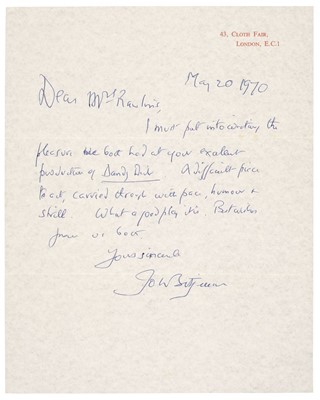 43, CLOTH FAIR,
LONDON, E.C.1
May 20 1970
Dear Mrs Rawlins
I must put into writing the
pleasure we both had at your excellent
production of Dandy Dick. A difficult piece
to act, carried through with pace, humour &
skill. What a good play it is. Best wishes
from us both
Yours sincerely
John Betjeman